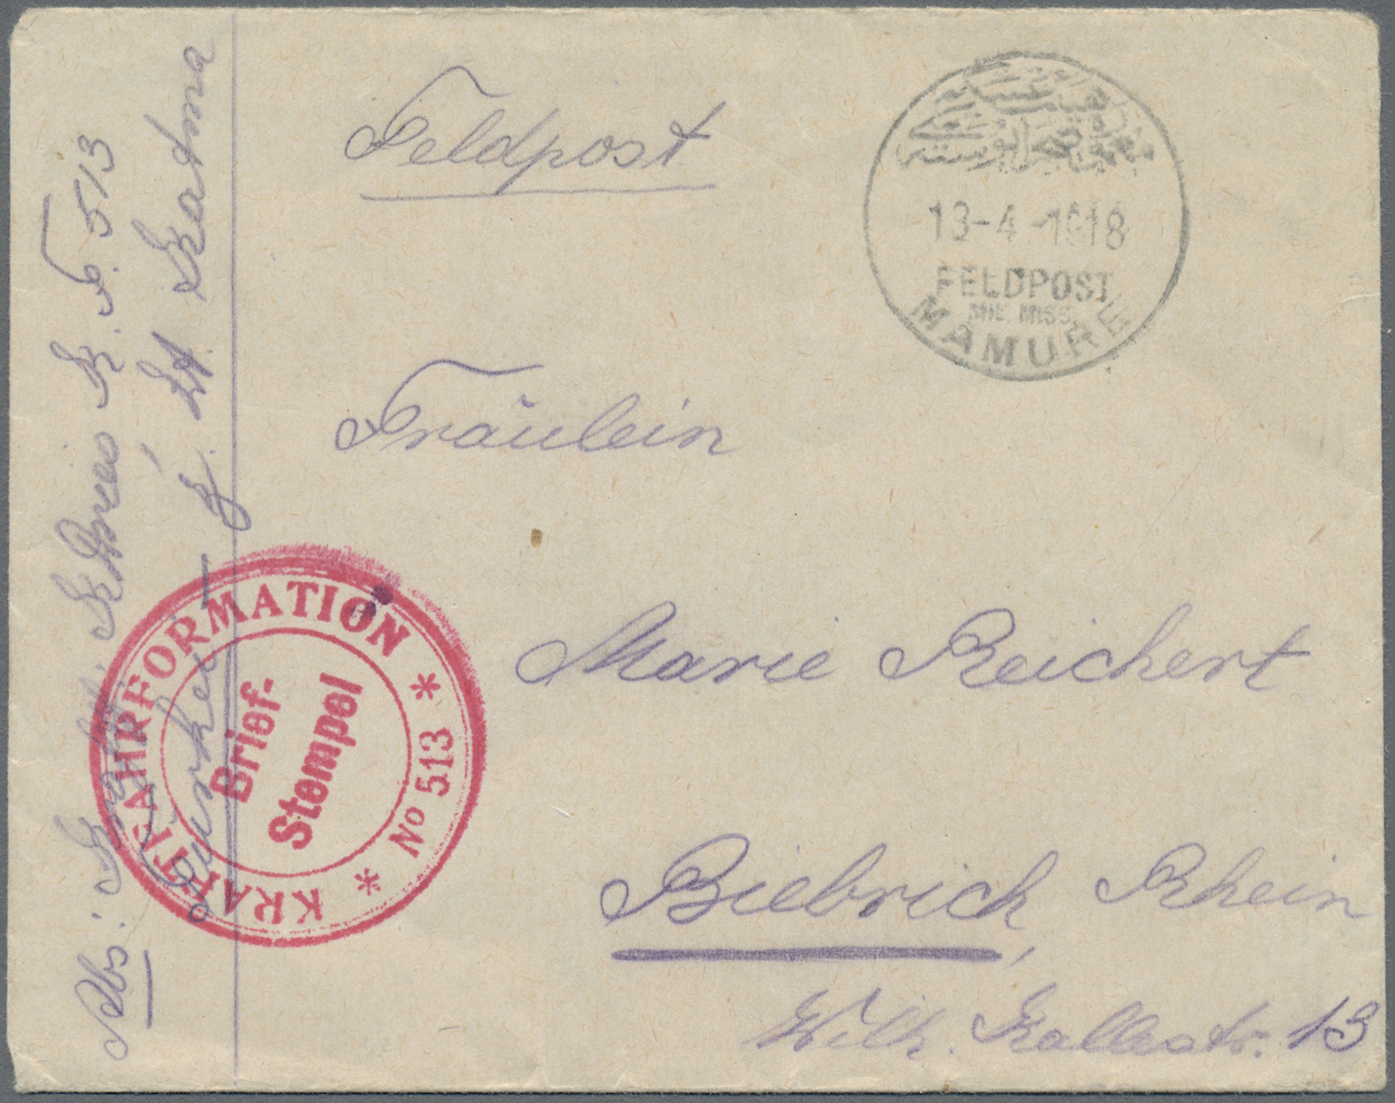 Feldpost
13-4-1918
FELDPOST
MIL. MISS.
MAMURE
Fräulein
Marie Reichert
Biebrich, Rhein
Wilh. Kallestr. 13
KRAFTFAHRFORMATION
* No 513 *
Brief-
Stempel
Abs: K. F. 513
Türkei